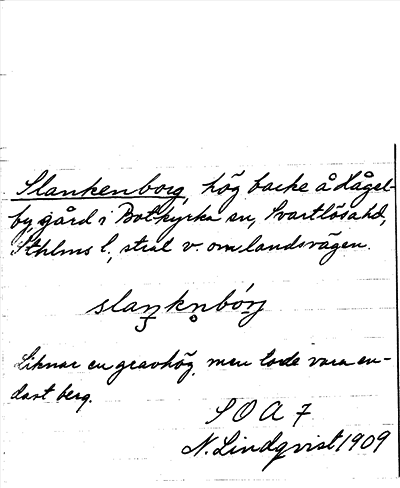 Slankenborg, hög backe å Hågel-
by gård i Botkyrka sn, Svartlösa hd,
Sthlms l., strax v. om landsvägen.
slaŋkn̥bórj
Liknar en gravhög, men lode vara en-
dast berg.
S O A 7
N. Lindqvist 1909